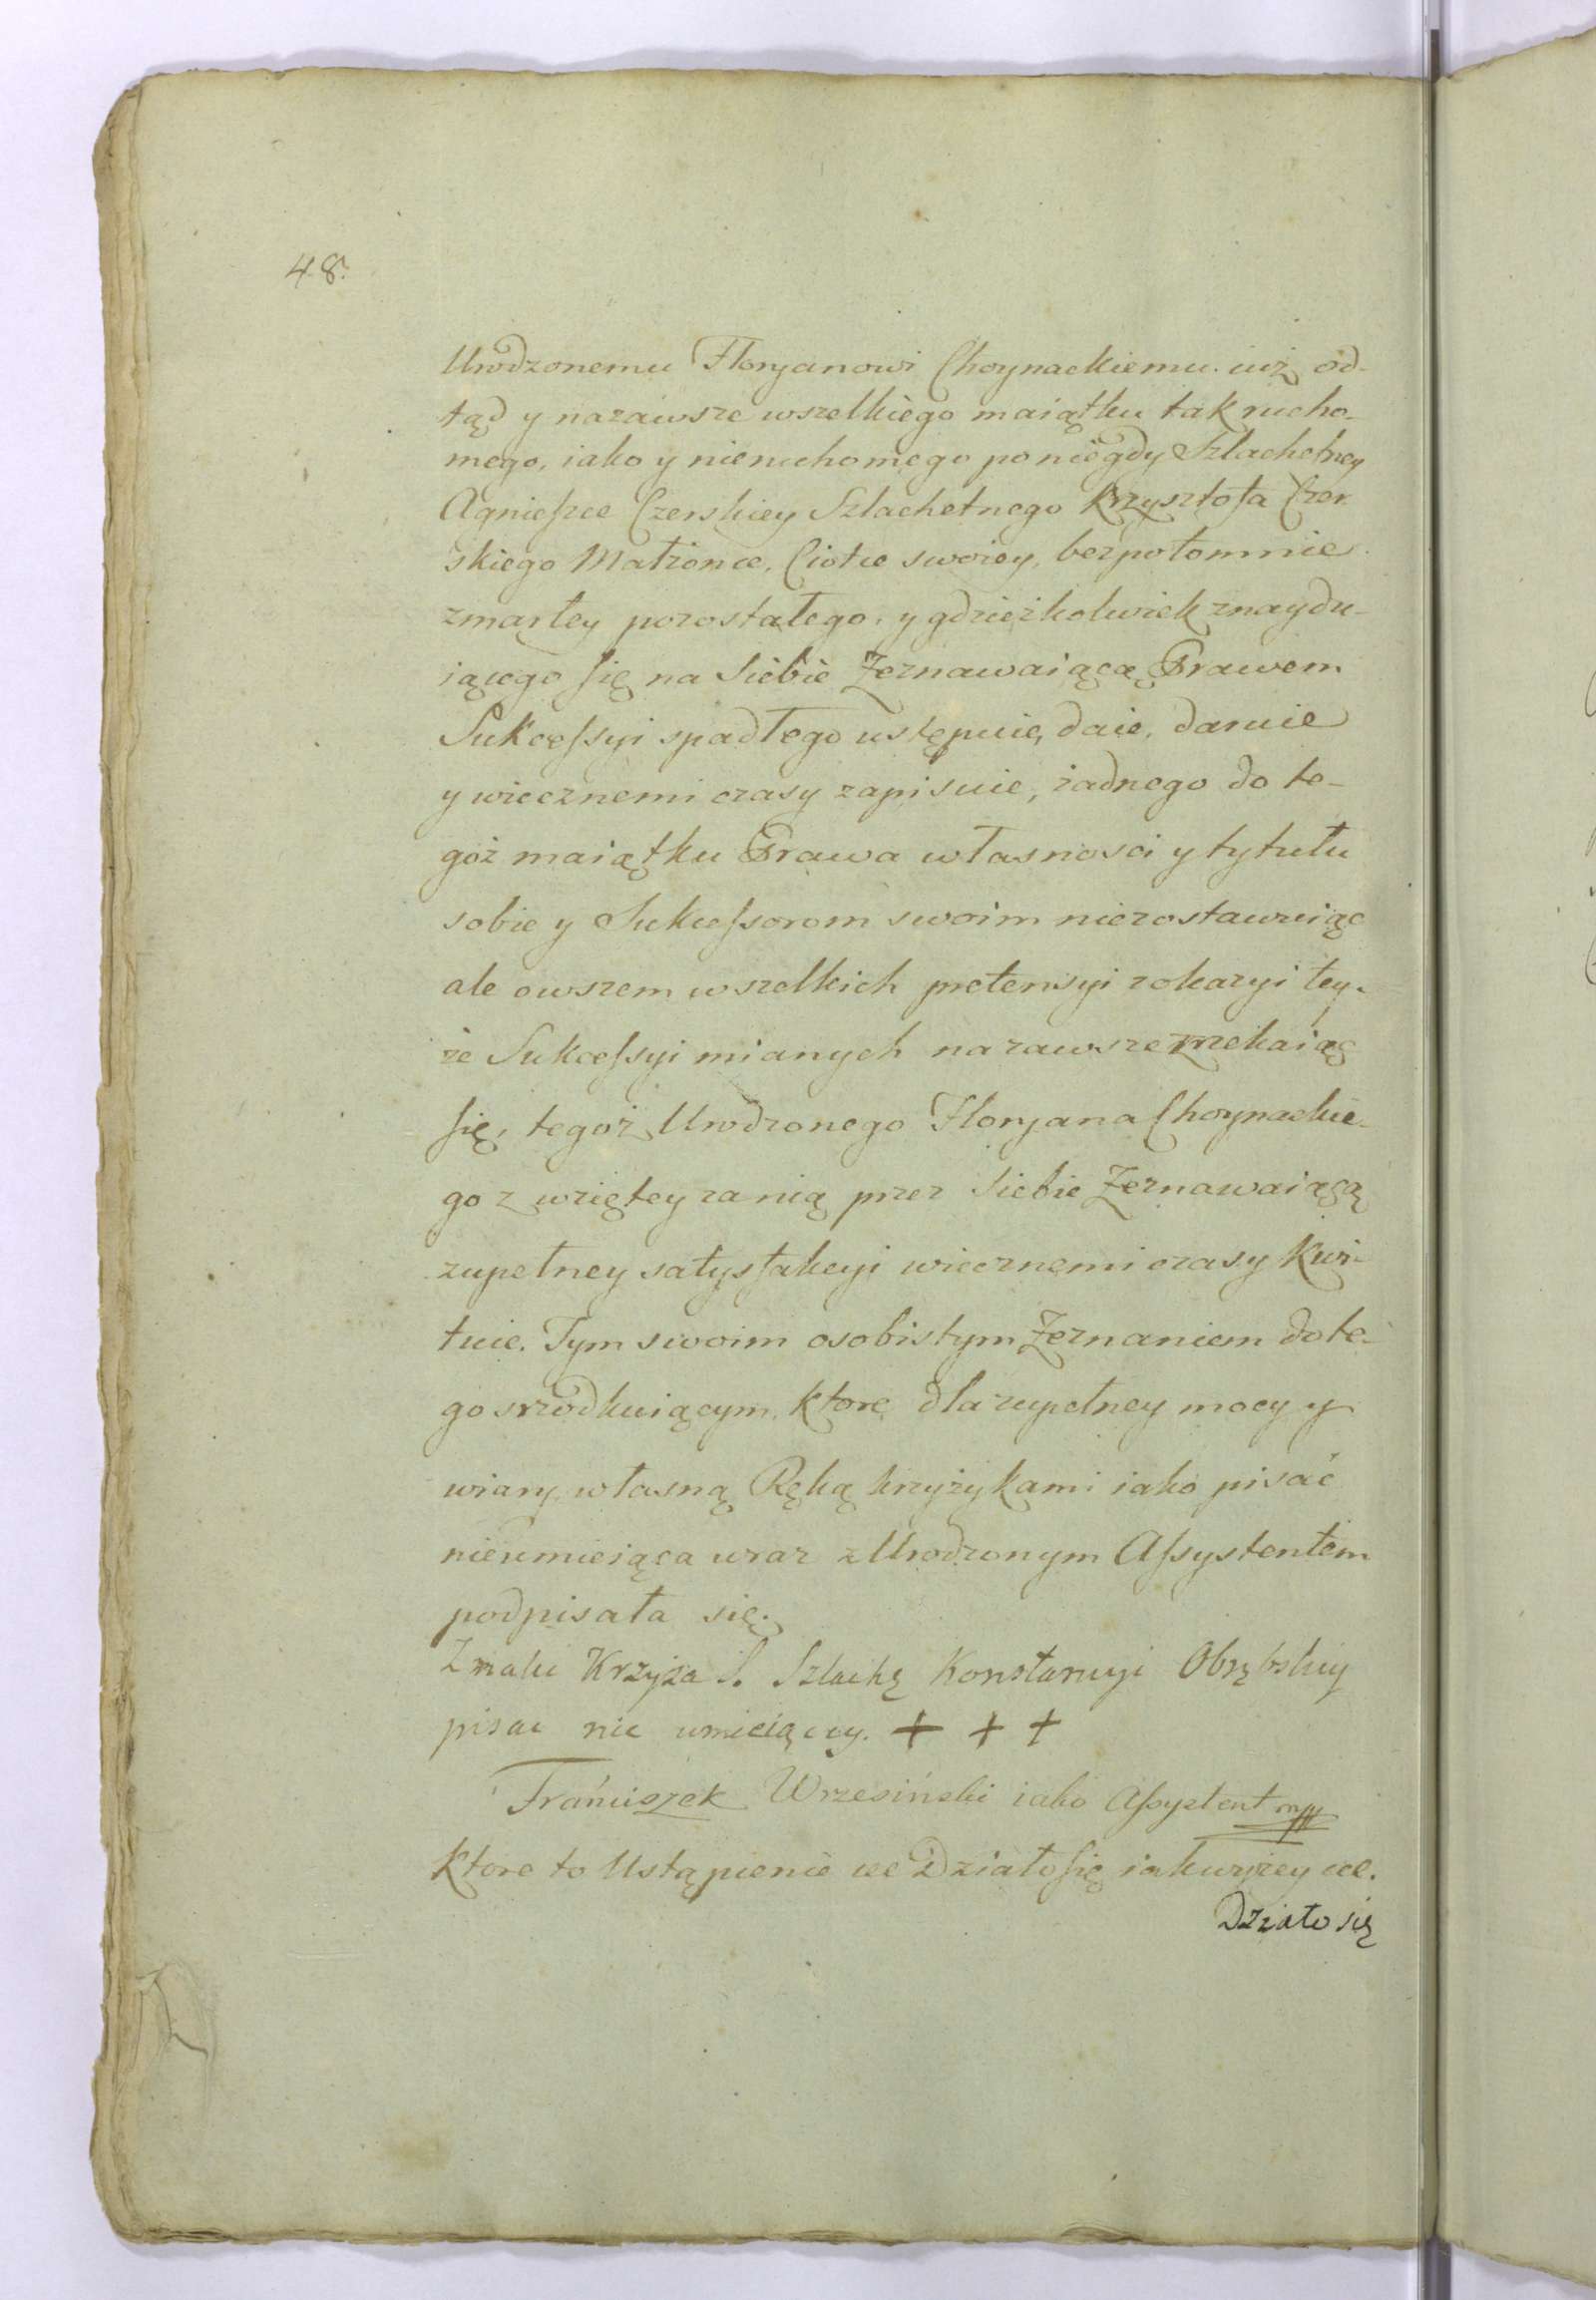 48.
Urodzonemu Floryanowi Choynackiemu iuż od-
tąd y nazawsze wszelkiego maiątku tak rucho-
mego, iako y nieruchomego po niegdy Szlachetney
Agnieszce Czerskiey Szlachetnego Krzysztofa Czer-
skiego Małżonce, Ciotce swoiey, bezpotomnie
zmarłey pozostałego, y gdzieżkolwiek znaydu-
iącego się na Siebie Zeznawaiącą Prawem
Sukcessyi spadłego ustępuie, daie, daruie
y wiecznemi czasy zapisuie, żadnego do te-
goż maiątku Prawa własnosci y tytułu
sobie y Sukcessorom swoim niezostawuiąc
ale owszem wszelkich pretensyi z okazyi tey-
że Sukcessyi mianych na zawsze zrzekaiąc
się, tegoż Urodzonego Floryana Choynackie-
go z wziętey za nią przez Siebie Zeznawaiącą
zupełney satysfakcyi wiecznemi czasy kwi-
tuie. Tym swoim osobistym Zeznaniem do te-
go srzodkuiącym, ktore dla zupełney mocy y
wiary własną Ręką krzyżykami iako pisać
nieumieiąca wraz z Urodzonym Assystentem
podpisała się.
Znaki Krzyża S. Szlachę Konstancyi Obrębskiey
pisac nie umieiącey. + + +
Franciszek Wrzesiński iako Assystent mpp
ktore to Ustąpienie etc Działo się iak wyżey etc.
Działo się